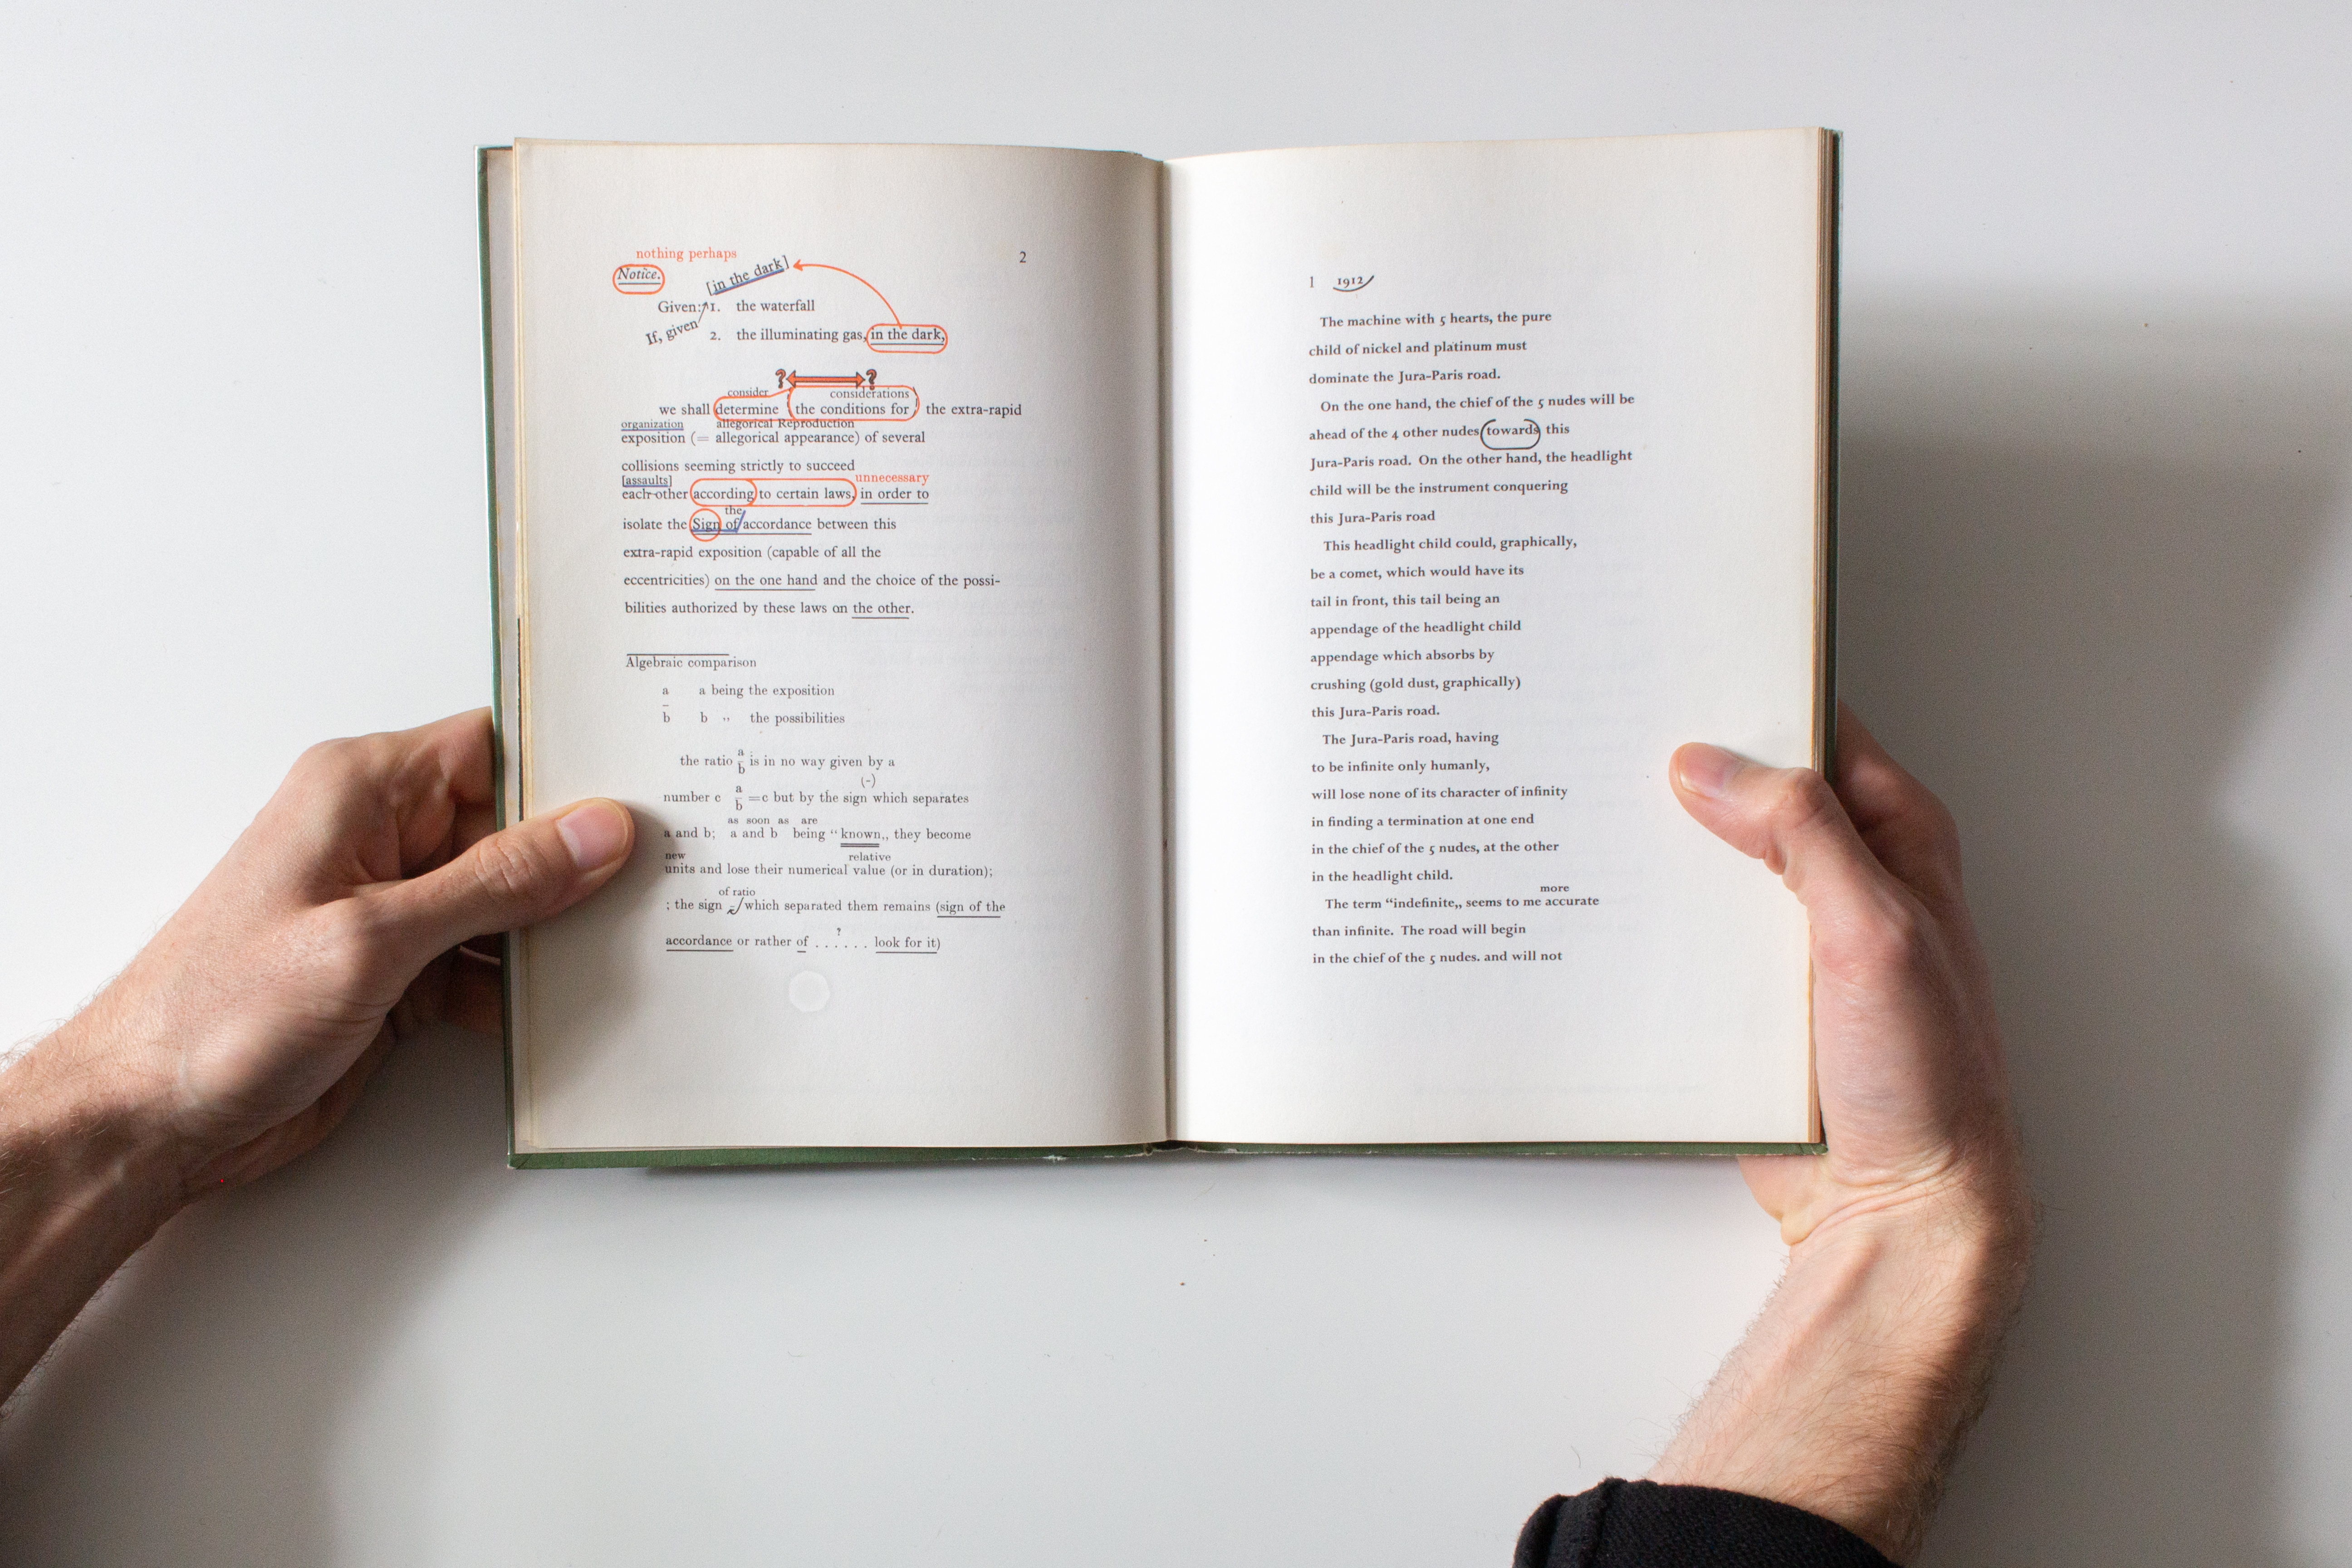 nothing perhaps
2
Notice.
[in the dark]
Given: 1. the waterfall
If, given
2. the illuminating gas, in the dark,
? ?
consider considerations
we shall determine (the conditions for) the extra-rapid
organization allegorical Reproduction
exposition (= allegorical appearance) of several
collisions seeming strictly to succeed
[assaults] unnecessary
each other according to certain laws, in order to
the
isolate the Sign of accordance between this
extra-rapid exposition (capable of all the
eccentricities) on the one hand and the choice of the possi-
bilities authorized by these laws on the other.
Algebraic comparison
a a being the exposition
b b ,, the possibilities
the ratio a/b is in no way given by a
(-)
number c a/b =c but by the sign which separates
as soon as are
a and b; a and b being “known,, they become
new relative
units and lose their numerical value (or in duration);
of ratio
; the sign - which separated them remains (sign of the
?
accordance or rather of . . . . . . look for it)
1 1912
The machine with 5 hearts, the pure
child of nickel and platinum must
dominate the Jura-Paris road.
On the one hand, the chief of the 5 nudes will be
ahead of the 4 other nudes towards this
Jura-Paris road. On the other hand, the headlight
child will be the instrument conquering
this Jura-Paris road
This headlight child could, graphically,
be a comet, which would have its
tail in front, this tail being an
appendage of the headlight child
appendage which absorbs by
crushing (gold dust, graphically)
this Jura-Paris road.
The Jura-Paris road, having
to be infinite only humanly,
will lose none of its character of infinity
in finding a termination at one end
in the chief of the 5 nudes, at the other
in the headlight child.
more
The term “indefinite,, seems to me accurate
than infinite. The road will begin
in the chief of the 5 nudes. and will not